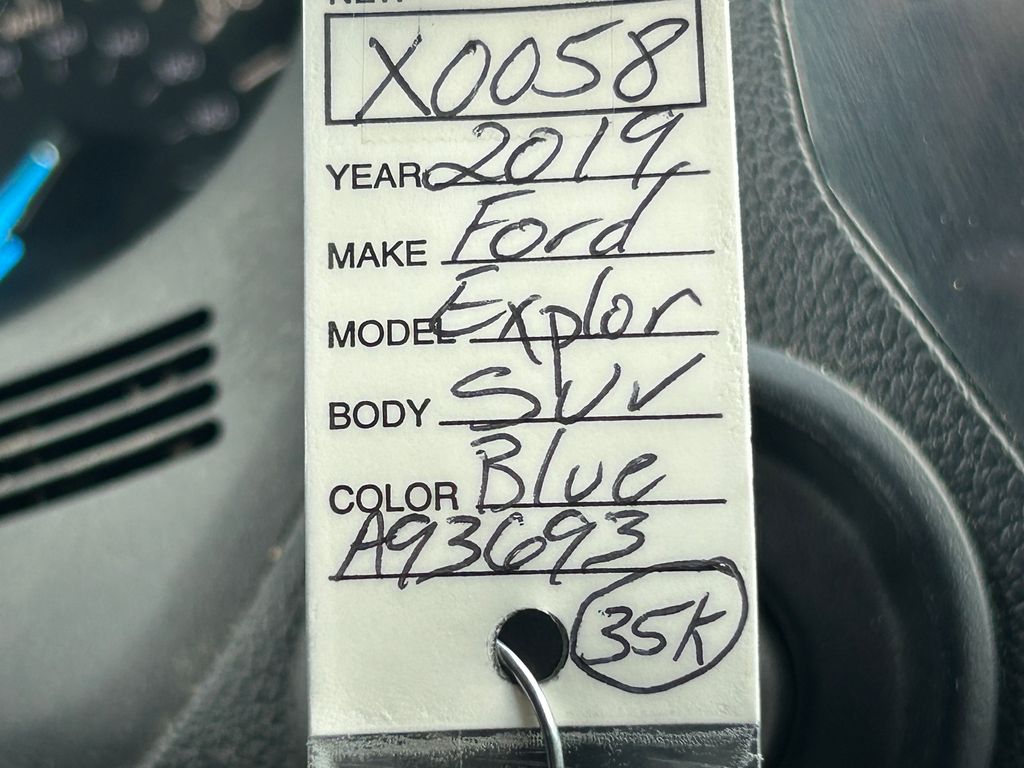 NEW
X0058
YEAR 2019
MAKE Ford
MODEL Explor
BODY SUV
COLOR Blue
A93693
35K